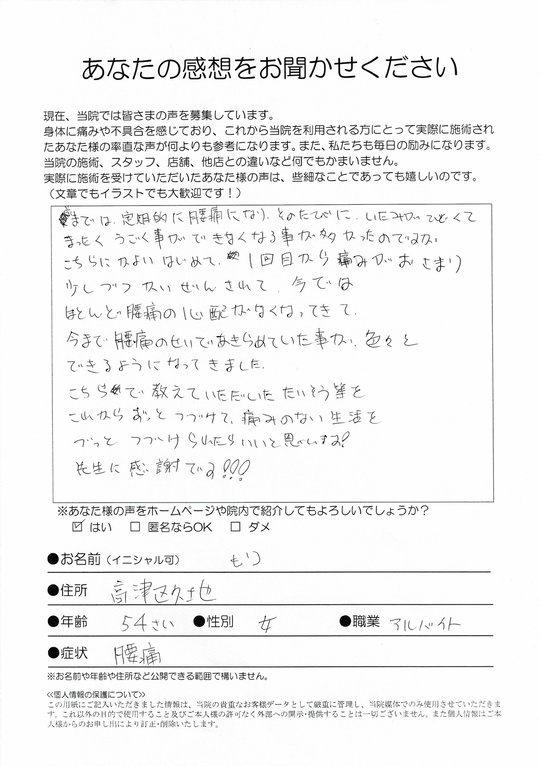 あなたの感想をお聞かせください
現在、当院では皆さまの声を募集しています。
身体に痛みや不具合を感じており、これから当院を利用される方にとって実際に施術され
たあなた様の率直な声が何よりも参考になります。また、私たちも毎日の励みになります。
当院の施術、スタッフ、店舗、他店との違いなど何でもかまいません。
実際に施術を受けていただいたあなた様の声は、些細なことであっても嬉しいのです。
（文章でもイラストでも大歓迎です！）
までは、定期的に腰痛になり、そのたびに、いたみがひどくて
まったくうごく事ができなくなる事が多かったのですが
こちらにかよいはじめて、1回目から痛みがおさまり
少しづつかいぜんされて、今では
ほとんど腰痛の心配がなくなってきて、
今まで腰痛のせいであきらめていた事が、色々と
できるようになってきました。
こちらで教えていただいたたいそう等を
これからずっとつづけて、痛みのない生活を
ずっとつづけられたらいいと思います!
先生に感謝です!!!
※あなた様の声をホームページや院内で紹介してもよろしいでしょうか？
☑ はい □ 匿名ならOK □ ダメ
●お名前（イニシャル可） もり
●住所 高津区久地
●年齢 54さい ●性別 女 ●職業 アルバイト
●症状 腰痛
※お名前や年齢や住所など公開できる範囲で構いません。
≪個人情報の保護について≫
この用紙にご記入いただきました情報は、当院の貴重なお客様データとして厳重に管理し、当院媒体でのみ使用させていただきま
す。これ以外の目的で使用すること及びご本人様の許可なく外部への開示・提供することは一切ございません。また個人情報はご本
人様からのお申し出により訂正・削除いたします。